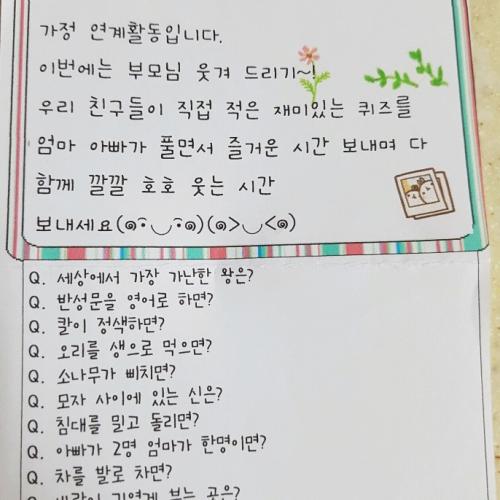 가정 연계활동입니다.
이번에는 부모님 웃겨 드리기~!
우리 친구들이 직접 적은 재미있는 퀴즈를
엄마 아빠가 풀면서 즐거운 시간 보내며 다
함께 깔깔 호호 웃는 시간
보내세요(๑･̑◡･̑๑)(๑>◡<๑)
Q. 세상에서 가장 가난한 왕은?
Q. 반성문을 영어로 하면?
Q. 칼이 정색하면?
Q. 오리를 생으로 먹으면?
Q. 소나무가 삐치면?
Q. 모자 사이에 있는 신은?
Q. 침대를 밀고 돌리면?
Q. 아빠가 2명 엄마가 한명이면?
Q. 차를 발로 차면?
Q. 바람이 귀엽게 부는 곳은?